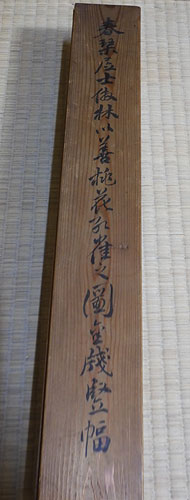 春琴居士倣林以善桃花孔雀之圖金牋竪幅